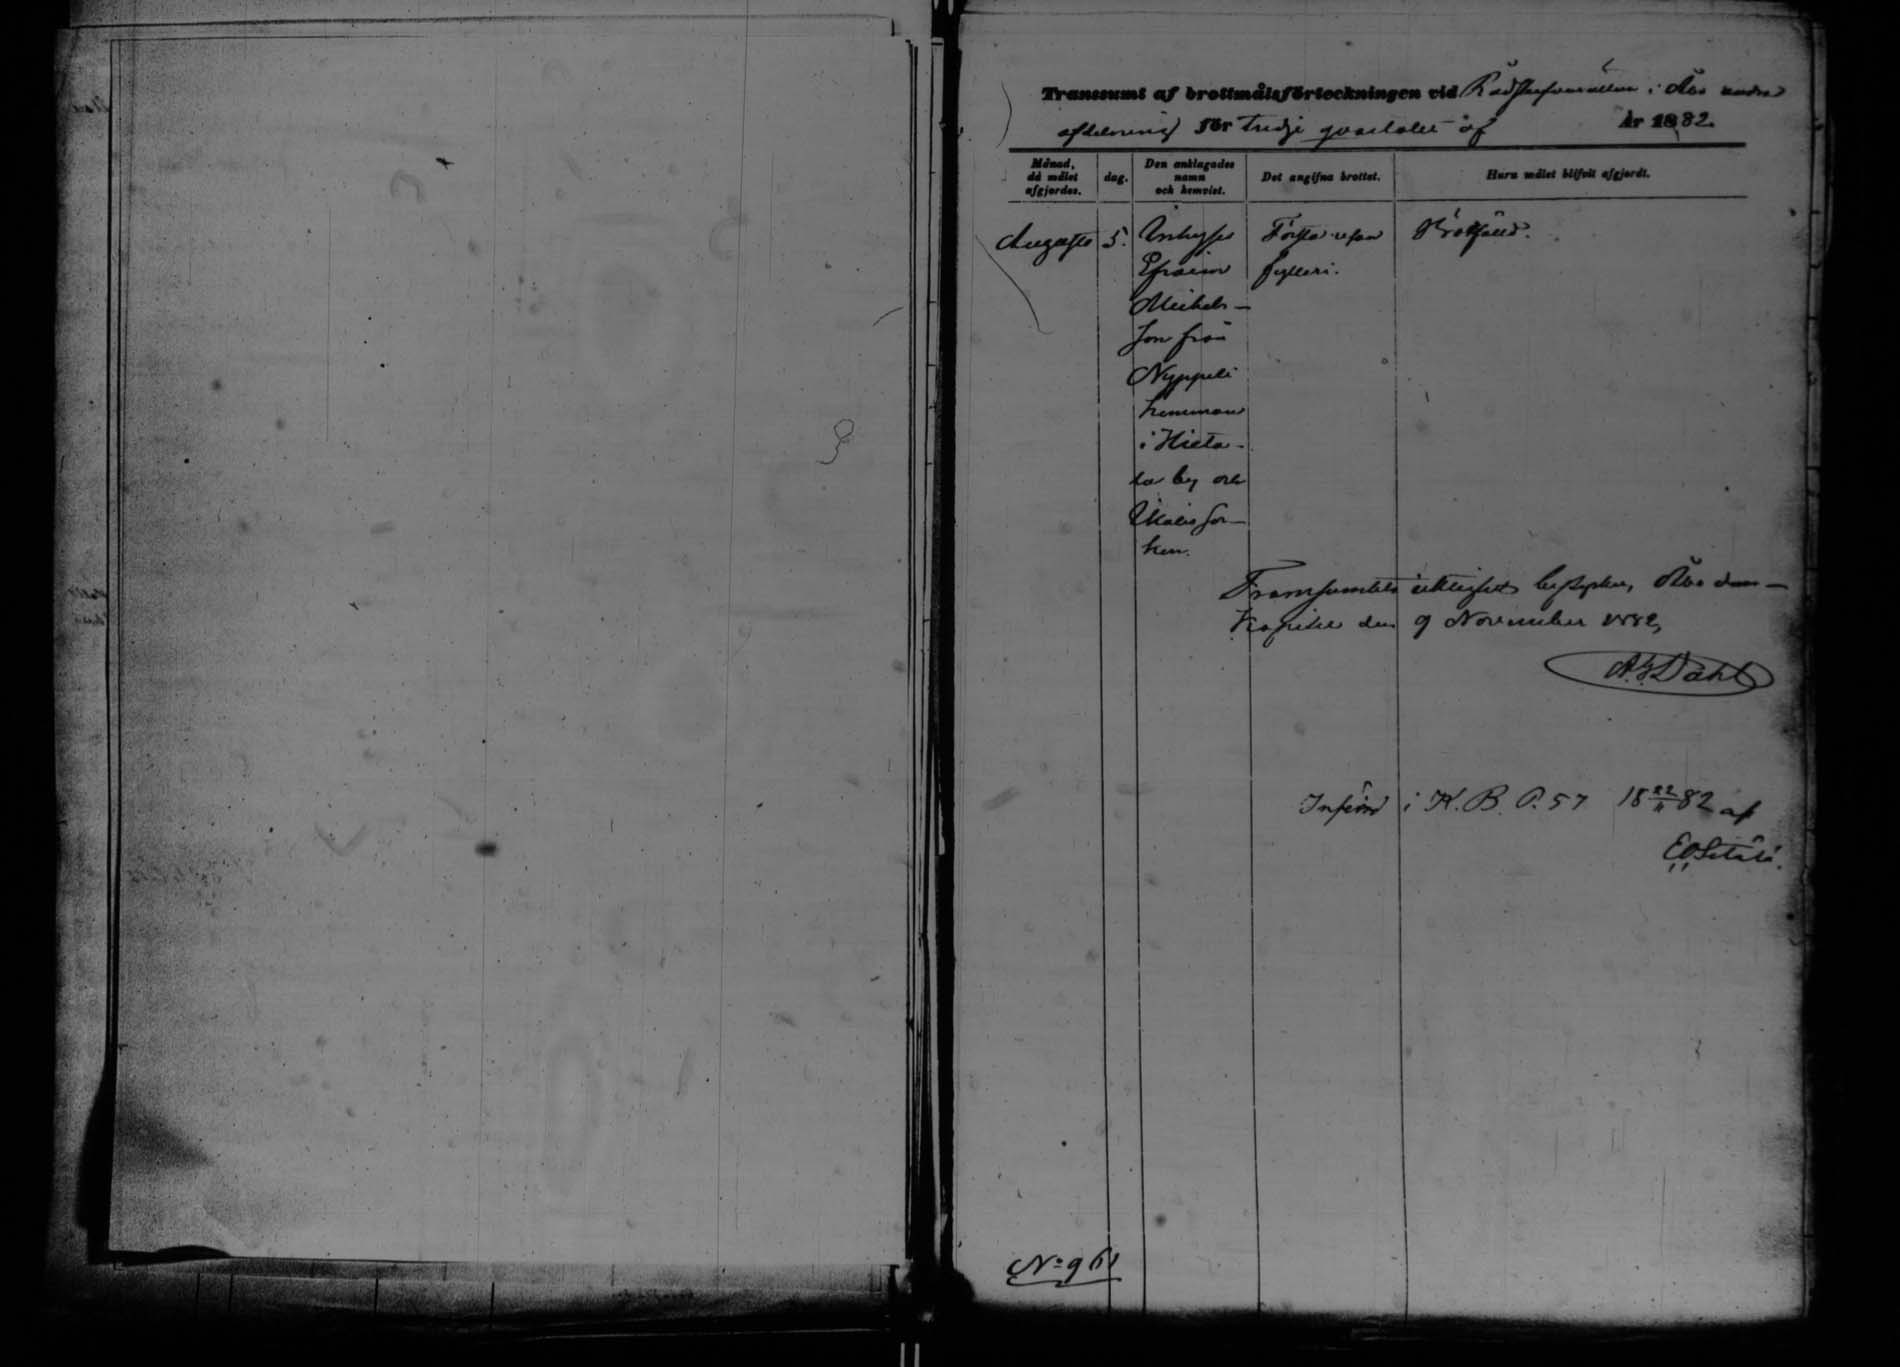 Transsumt af brottmålsförteckningen vid Rådstufvurätten i Åbo andra
afdelning för tredje qvartalet af År 1882.
Månad, då målet afgjordes.
dag.
Den anklagades namn och hemvist.
Det angifna brottet.
Huru målet blifvit afgjordt.
Augusti 5. Inhyses Första resan Sakfälld.
Efraim fylleri.
Mickels-
son från
Nyppeli
hemman
i Hieta-
la by och
Ukalis soc-
ken.
Transumtets riktighet bestyrker, Åbo dom-
kapitel den 9 November 1882,
A. G. Dahl
Införd i K. B. P. 57 18 22/11 82 af
E. O. Setälä.
No 961